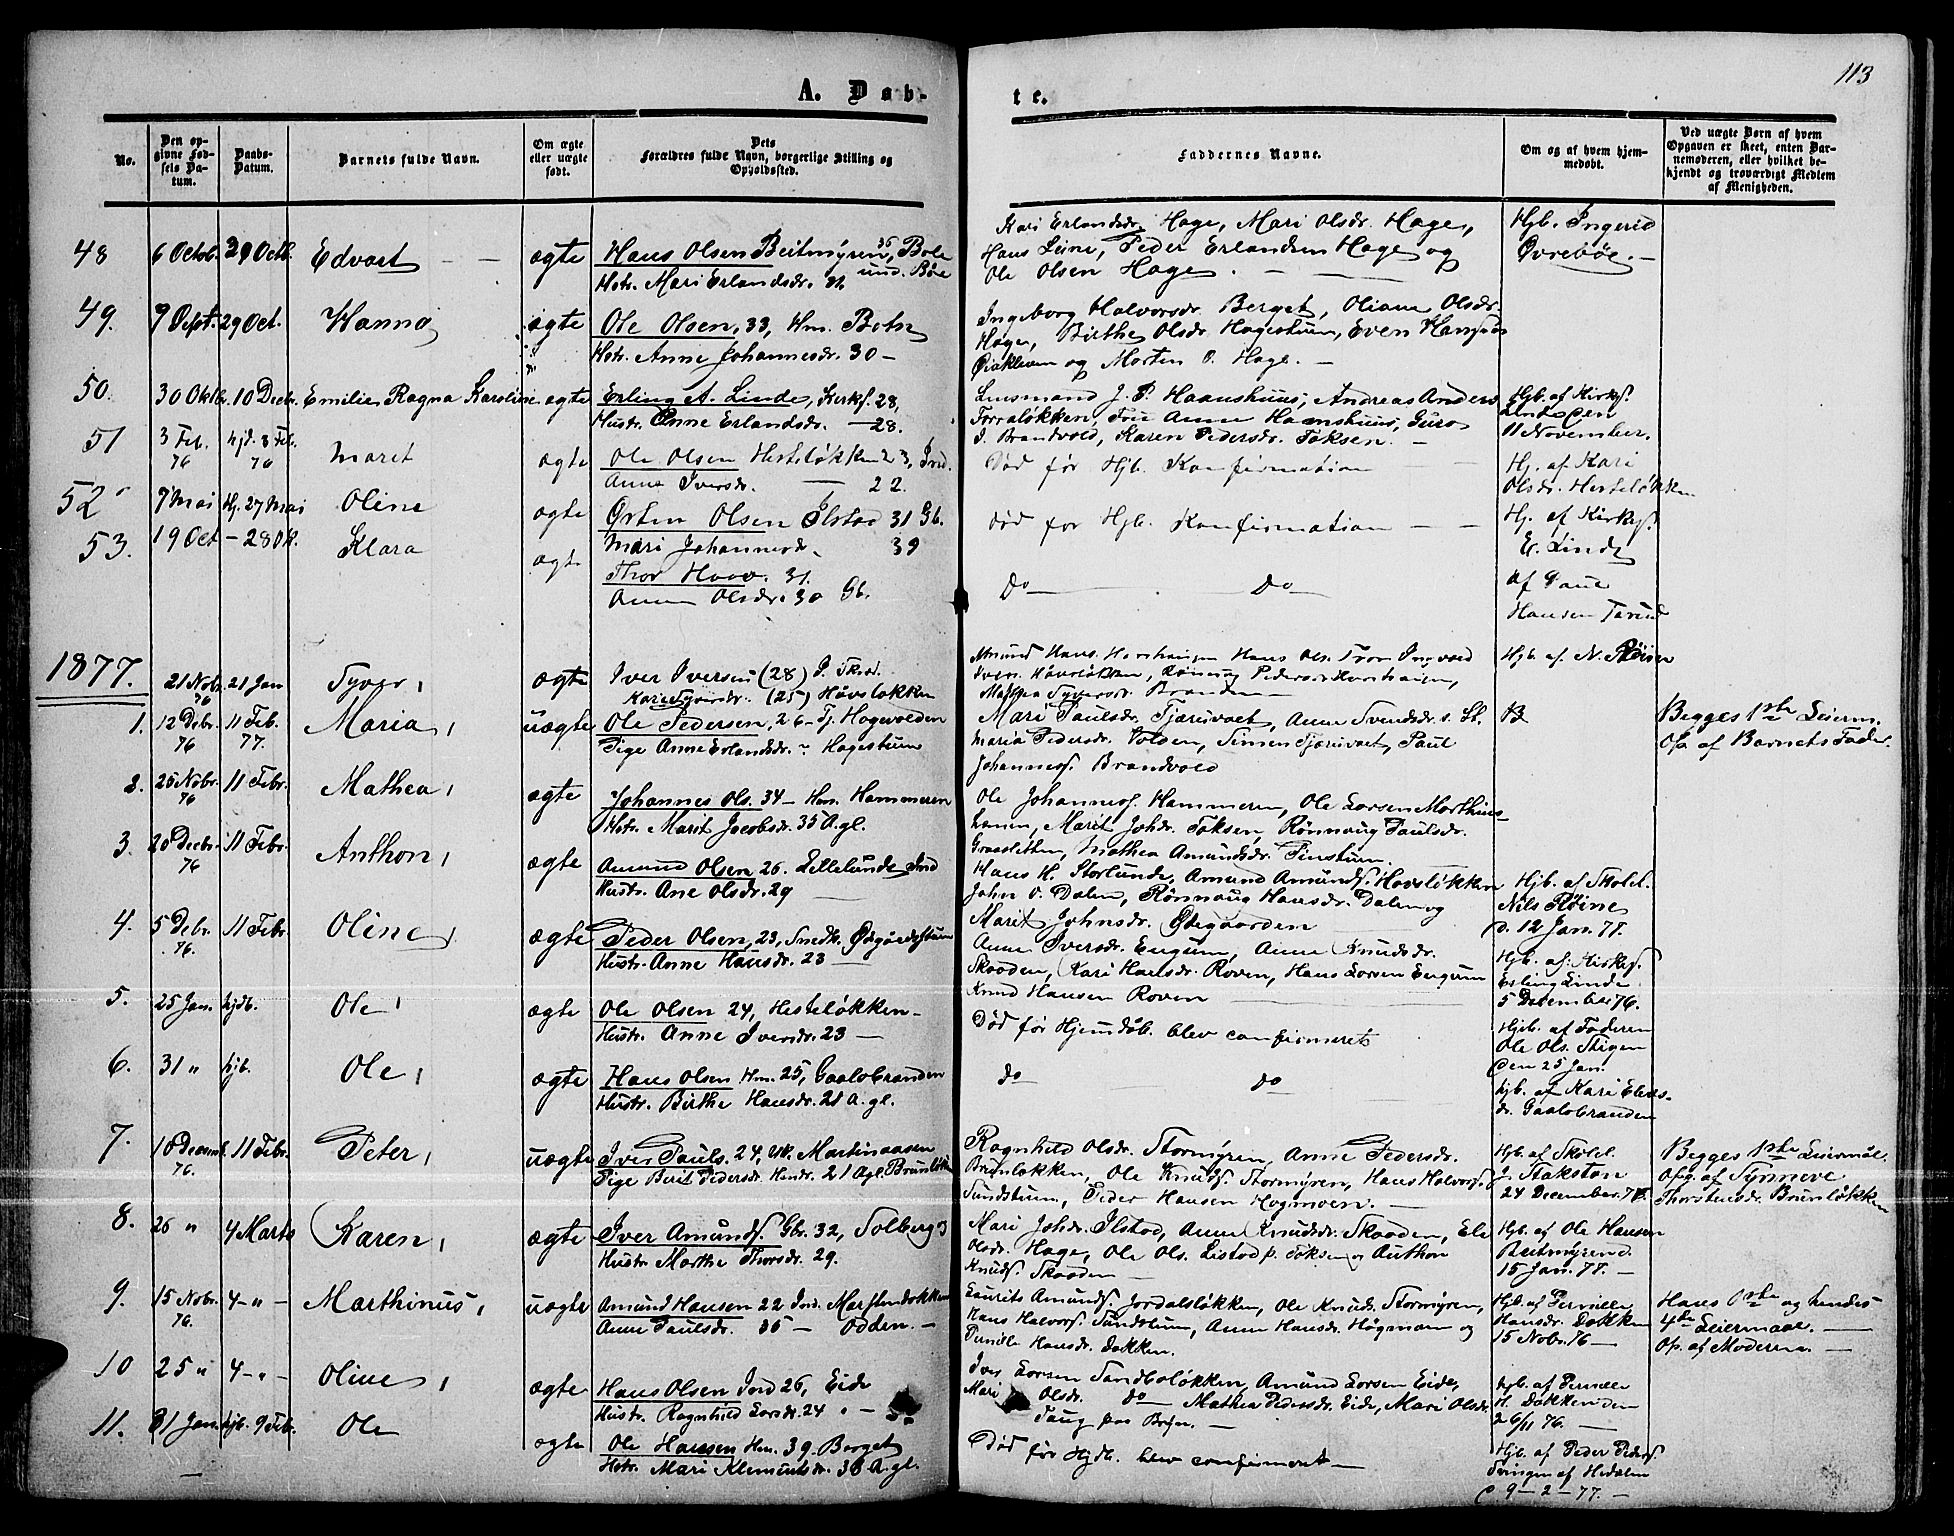 113
A. Døb-
te.
No.
Den opgivne Fødsels Datum.
Daabs-Datum.
Barnets fulde Navn.
Om ægte eller uægte født.
Dets Forældres fulde Navn, borgerlige Stilling og Opholdssted.
Faddernes Navne.
Om og af hvem hjemmedøbt.
Ved uægte Børn af hvem Opgaven er skeet, enten Barnemoderen, eller hvilket bekjendt og troværdigt Medlem af Menigheden.
48 6 Octob. 29 Octb. Edvart ægte Hans Olsen Beitmyren 36,
Hstr. Mari Erlandsdr.
Kari Erlandsdr. Hage, Mari Olsdr. Hage,
Peder Erlandsen Hage og
Ole Olsen Hage.
Hjb. Ingerid
Øvrebøe.
49. 9 Sept. 29 Oct. Hanna ægte Ole Olsen, 33, Hm. Botn
Hstr. Anne Johannesdr. 30
Ingeborg Halvorsdr. Berget, Oliane Olsdr.
Hage, Birthe Olsdr. Hagestuen, Even
og Morten O. Hage.
50. 30 Oktbr. 10 Decbr. Emilie Ragna Karoline ægte Erling A. Linde, Kirks. 28,
Hustr. Anne Erlandsdr. 28.
Lensmand J. P. Haanshuus, Andreas Anders
Fru Anne Haanshuus, Guro
J. Brandvold, Karen Pedersdr. Toksen.
Hjb. af Kirks.
Linde den
11 November.
51 3 Feb. 76 hjd. 3 Feb. 76 Marit ægte Ole Olsen Hesteløkken 23, Ind.
Anne Iversdr. 22.
Død før Hjb. Konfirmation
Hj. af Kari
Olsdr. Hesteløkken
52 7 Mai Hj. 27 Mai Oline ægte Østen Olsen Ilstad 31 Gb.
Mari Johannesdr. 39
Død før Hjb. Konfirmation
Hj. af Kirks.
E. Linde
53. 19 Oct - 28 Ok. Klara ægte Thor 31.
Anne Olsdr. 30 Gb.
Do Do
af
Hansen
1877.
21 Nobr. 76 21 Jan Syver, ægte Iver Iversen (28)
(25) Høvsløkken
Hans Ols.
Høvsløkken,
Mathea Syversdr. Branden
Hjb. af N. Røine
1. 12 Debr. 76 11 Feb. 77. Maria, uægte Ole Pedersen, 26 - Tj. Hagevolden
Pige Anne Erlandsdr. Hagestuen
Mari Paulsdr. Tjærisvaet, Anne Svendsdr.
Maria Pedersdr. Volden, Simen Tjærisvaet, Paul
Johanness. Brandvold
Begges 1ste Leierm.
Op. af Barnets Fader.
2. 25 Nobr. 76 11 Febr. Mathea, ægte Johannes Ols. 34 - Hm. Hammeren
Hstr. Marit Jacobsdr. 35 A. gl.
Ole Johanness. Hammeren, Ole Larsen
Marit Johdr. Toksen, Rønnaug Paulsdr.
Mathea Amundsdr.
3. 20 Decbr. 76 11 Febr. Anthon, ægte Amund Olsen 26. Lillelunde Ind
Hustr. Ane Olsdr. 29
Hans H. Storlunde, Amund Amunds. Hovsløkken
John O. Dalen, Rønnaug Hansdr. Dalen og
Marit Johnsdr. Ødegaarden
Hjb. af Skolel.
Nils Røine
d. 12 Jan. 77.
4. 5 Debr. 76. 11 Febr. Oline, ægte Peder Olsen, 23, Smedk. Ødegaardstuen
Hustr. Anne Hansdr. 23
Anne Iversdr. Eugum, Anne Knudsdr.
Skaaden, Kari Hansdr. Roven, Hans Larsen Eugum
Knud Hansen Roven
Hjb. af Kirkes.
Erling Linde
5 December 76.
5. 25 Jan. hjdb. Ole, ægte Ole Olsen 24, Hesteløkken
Hustr. Anne Iversdr. 23
Død før Hjemdøb. blev confirmeret
Hjb. af Faderen
Ole Ols. Stigen
den 25 Jan.
6. 31 " hjb. Ole, ægte Hans Olsen Hm. 25, Gaalobranden
Hustr. Birthe Hansdr. 21 A. gl.
do do
hjb. af Kari
Gaalobranden
7. 10 Decemb. 76. 11 Febr. Peter, uægte Iver Pauls. 24, Martinaasen
Pige Berit Pedersdr. 21 A gl.
Ragnhild Olsdr. Stormyren, Anne Pedersdr.
Ole Knuds. Stormyren, Hans Halvors.
Sundstuen, Peder Hansen Hogmoen.
Hjb. af Skolel.
J. Stakston
24 December 76.
Begges 1ste Leiermaal.
Opg. af Synneve
Thorstensdr.
8. 26 " 4 Marts Karen, ægte Iver Amunds. Gbr. 32, Solberg
Hustr. Marthe Thorsdr. 29.
Mari Johdr. Ilstad, Anne Knudsdr. Skaaden, Eli
Olsdr. Hage, Ole Ols. Listad p. Toksen og Anthon
Knuds. Skaaden
Hjb. af Ole Hansen
Beitmyren d.
15 Jan. 77.
9. 15 Nobr. 76. 4 - " - Marthinus, uægte Amund Hansen 22 Ind.
Anne Paulsdr. 35 - Odden.
Laurits Amunds. Jordalsløkken, Ole Knuds. Stormyren,
Hans Halvors. Sundstuen, Anne Hansdr. Høgmoen og
Pernille Hansdr. Dokken.
Hjb. af Pernille
Hansdr. Dokken
15 Nobr. 76
Hans 1ste og hendes
4de Leiermaal.
Op. af Moderen.
10 25 " 4 - " - Oline, ægte Hans Olsen Ind 26, Eide
Hustr. Ragnhild Larsdr. 24 " -
Iver Larsen Sandboløkken, Amund Larsen Eide,
Mari Olsdr. do Mathea Pedersdr. Eide, Mari Olsdr.
hjb. af Pernille
H. Dokken den
26/11 76.
11. 31 Jan. hjb. 9 Feb. Ole ægte Ole Hansen Hm. 39. Berget
Hstr. Mari Klemetsdr. 36 A. gl.
Død før Hjdb. blev confirmeret
Hjb. af Peder Peders.
Svingen af Hedalen
d. 9 - 2 - 77.